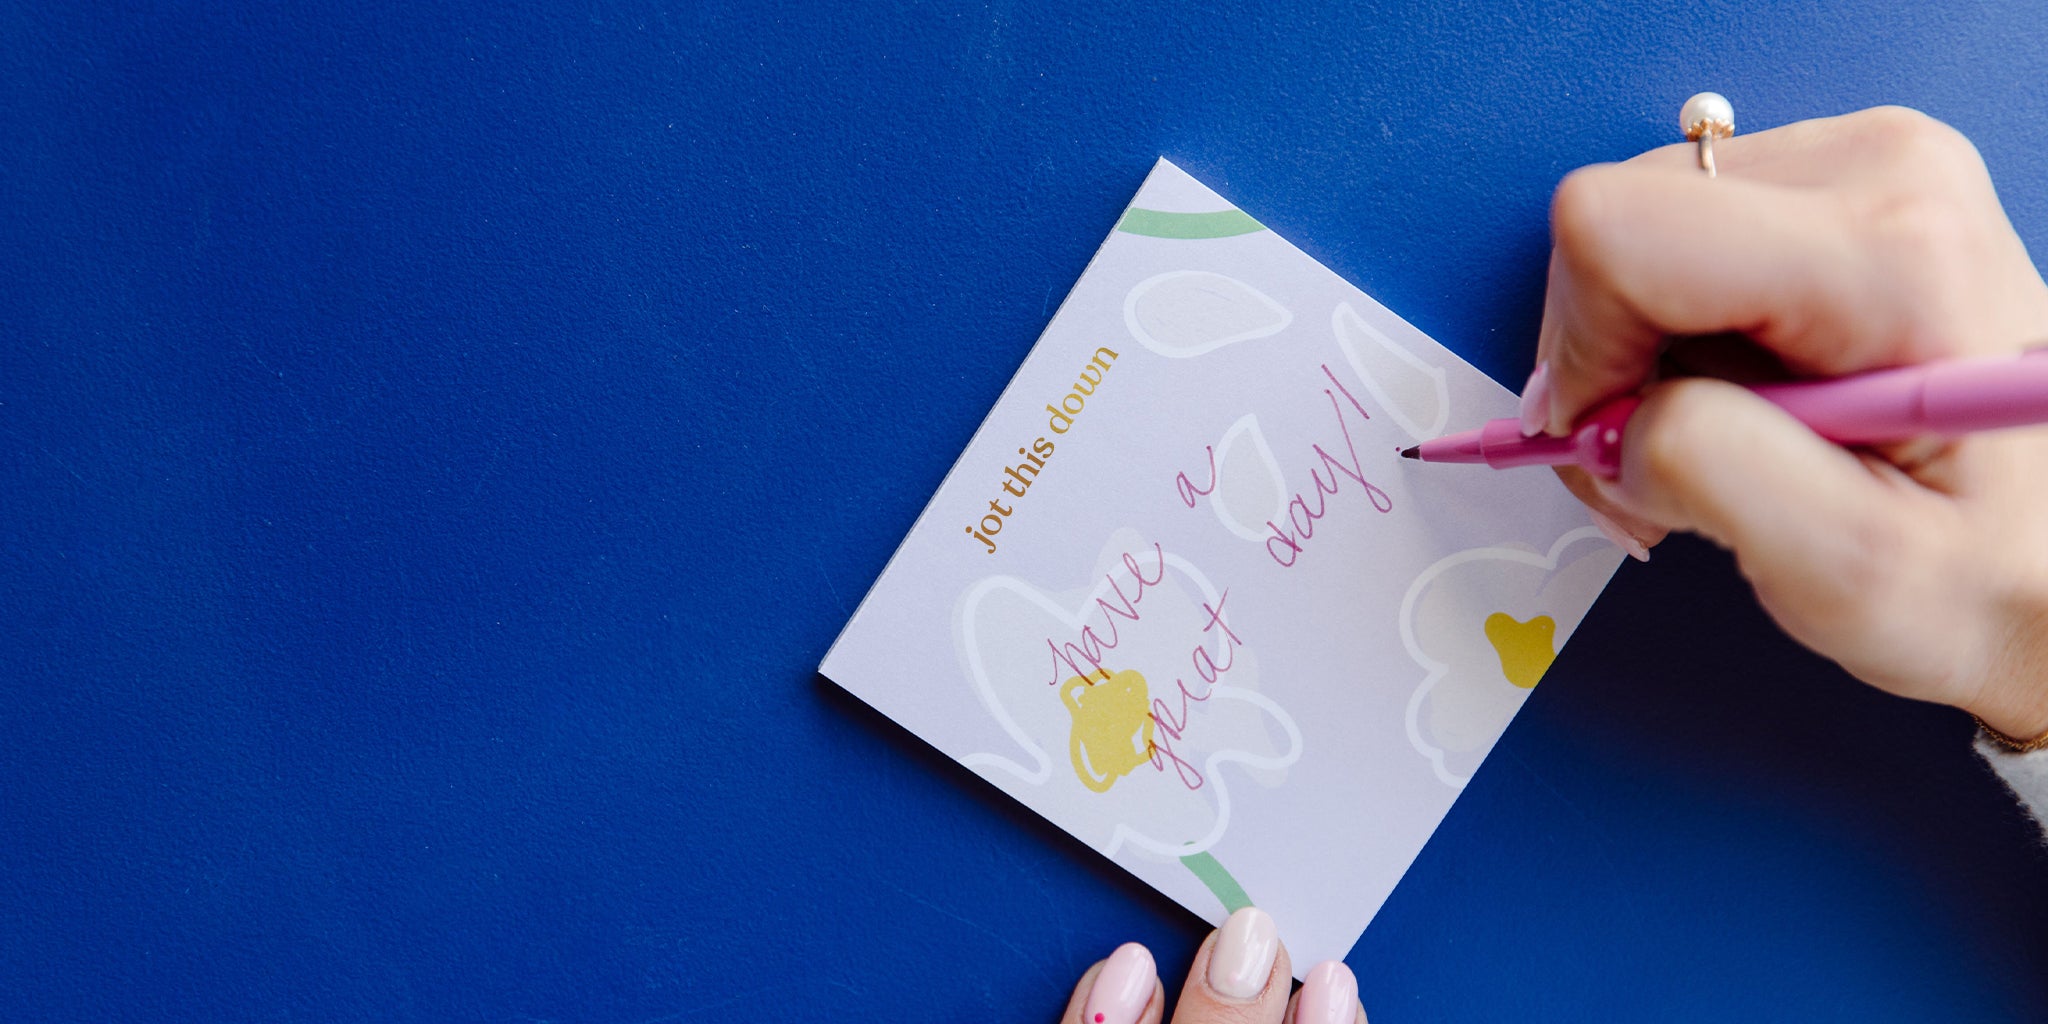 jot this down
have a
great day!!